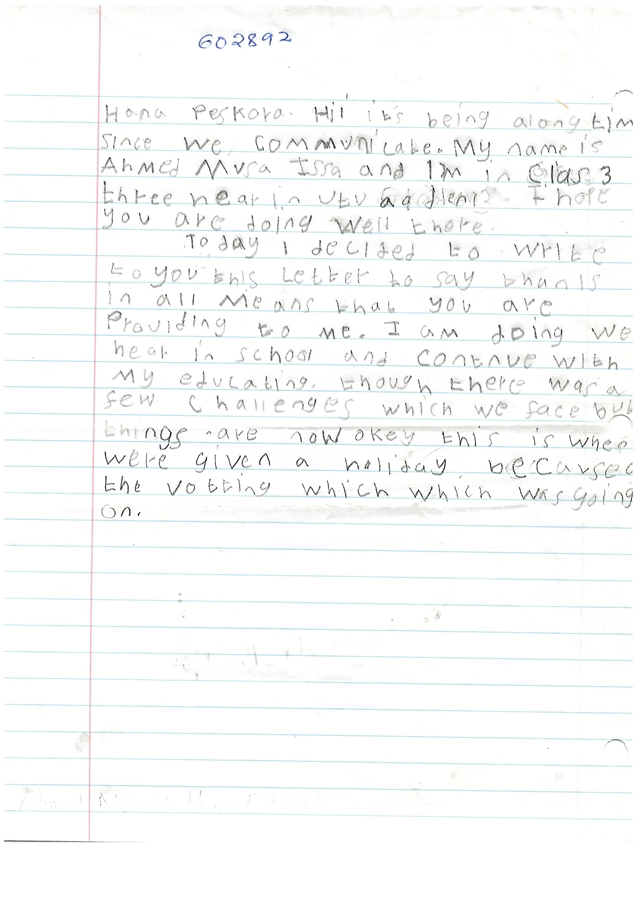 602892
Hana Peskova. Hi! it's being along tim
since we communicate. My name is
Ahmed Musa Issa and I'm in Clas 3
three hear in I hope
you are doing well there.
Today I decided to write
to you this Letter to say thanls
in all Means that you are
Providing to Me. I am doing we
hear in school and contnue with
My educating. though there was a
few challenges which we face but
things are now okey this is when
were given a holiday because
the votting which which was going
on.